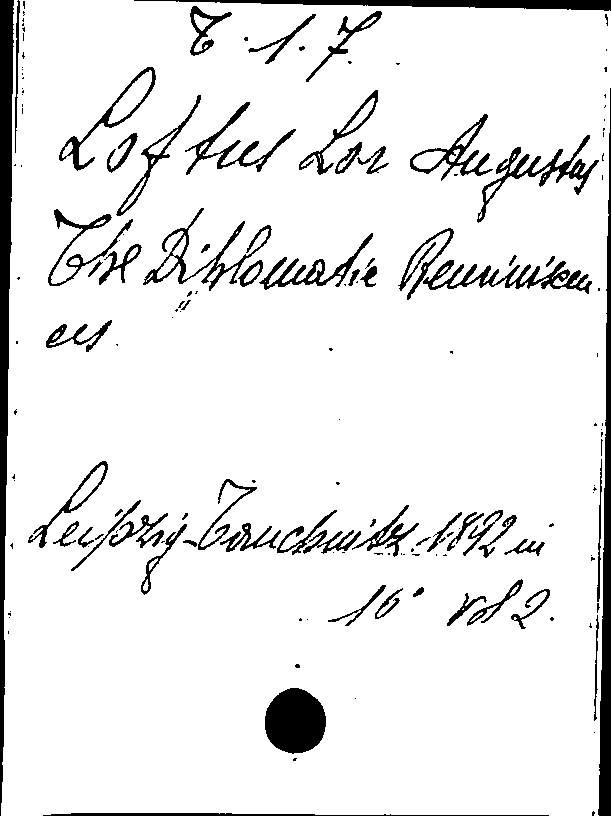 T. 1. 7.
Loftus Lor Augustus
The Diplomatic Reminiscen
ces
Leipzig-Tauchnitz 1892 in
16° Vol 2.